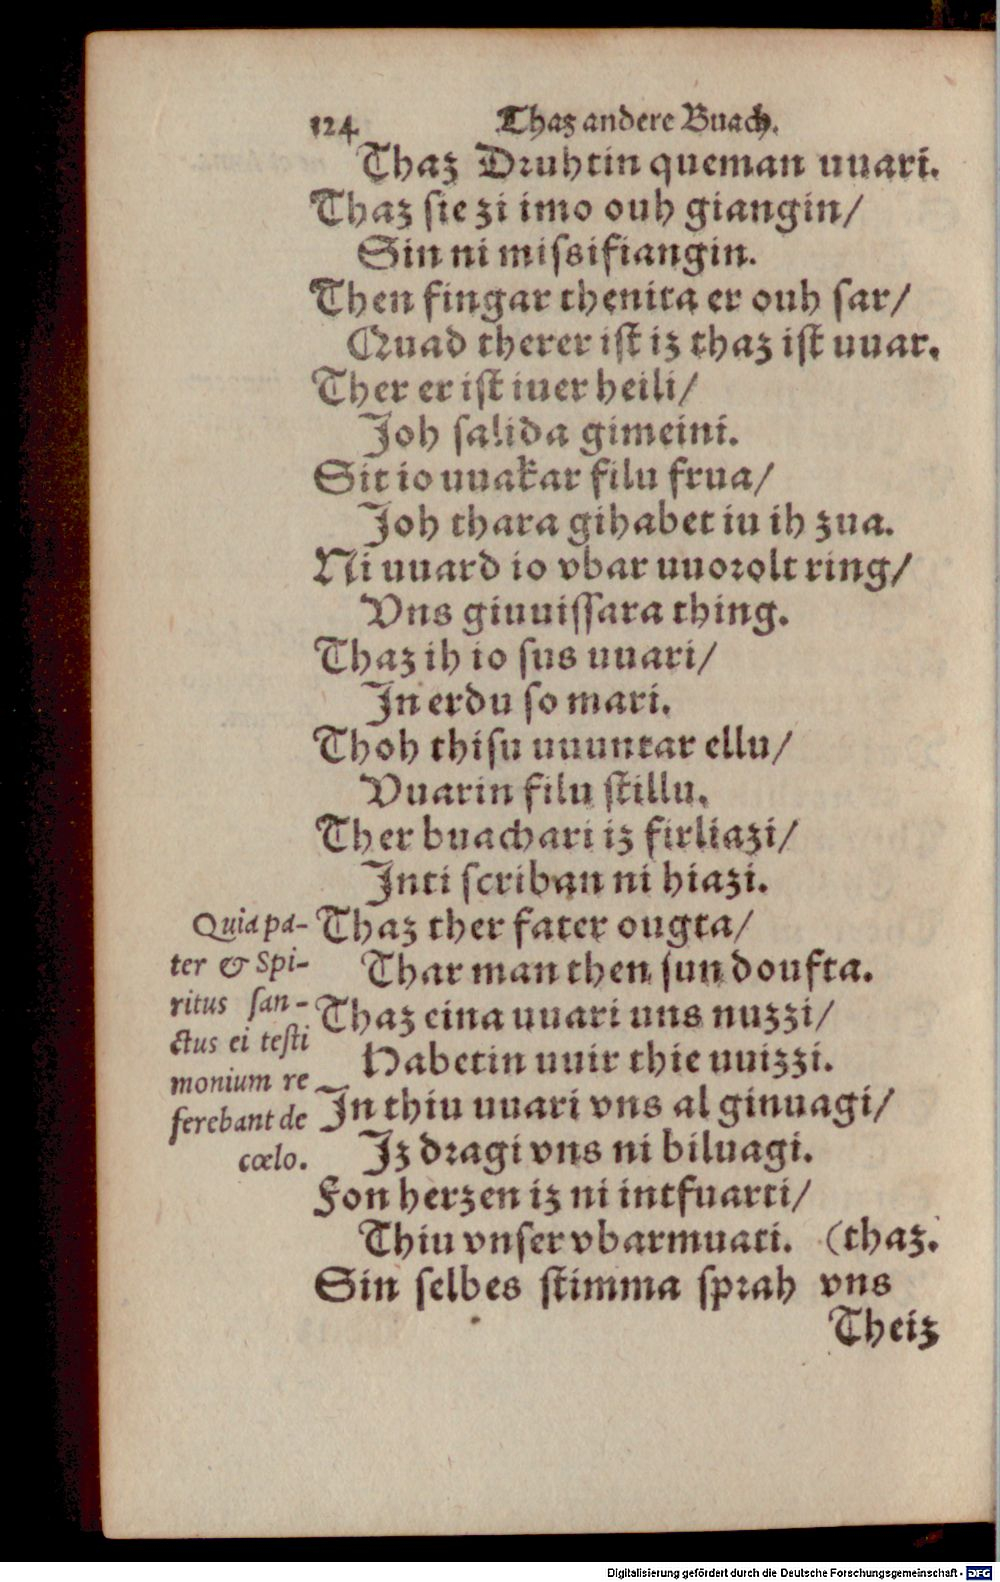 124 Thaz andere Buach.
Thaz Druhtin queman uuari.
Thaz sie zi imo ouh giangin/
Sin ni missifiangin.
Then fingar thenita er ouh sar/
Quad therer ist iz thaz ist uuar.
Ther er ist iuer heili/
Joh salida gimeini.
Sit io uuakar filu frua/
Joh thara gihabet iu ih zua.
Ni uuard io vbar uuorolt ring/
Vns giuuissara thing.
Thaz ih io sus uuari/
In erdu so mari.
Thoh thisu uuuntar ellu/
Vuarin filu stillu.
Ther buachari iz firliazi/
Inti scriban ni hiazi.
Thaz ther fater ougta/
Thar man then sun doufta.
Thaz eina uuari uns nuzzi/
Habetin uuir thie uuizzi.
In thiu uuari vns al ginuagi/
Iz dragi vns ni biluagi.
Fon herzen iz ni intfuarti/
Thiu vnser vbarmuati. (thaz.
Sin selbes stimma sprah vns
Theiz
Quia pa-
ter & Spi-
ritus san-
ctus ei testi
monium re
ferebant de
cœlo.
Digitalisierung gefördert durch die Deutsche Forschungsgemeinschaft - DFG